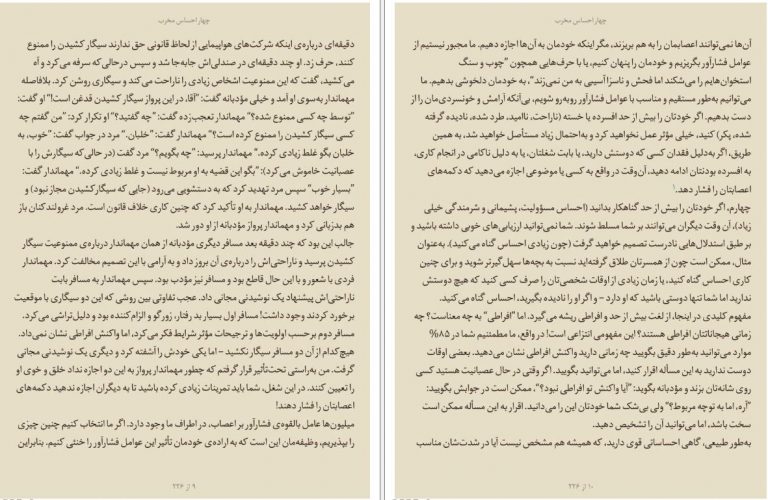 چهار احساس مخرب
دقیقه‌ای درباره‌ی اینکه شرکت‌های هواپیمایی از لحاظ قانونی حق ندارند سیگار کشیدن را ممنوع
کنند، حرف زد. او چند دقیقه‌ای در صندلی‌اش جابه‌جا شد و سپس درحالی‌که سرفه می‌کرد و آه
می‌کشید، گفت که این ممنوعیت اشخاص زیادی را ناراحت می‌کند و سیگاری روشن کرد. بلافاصله
مهماندار به‌سوی او آمد و خیلی مؤدبانه گفت: "آقا، در این پرواز سیگار کشیدن قدغن است!" او گفت:
"توسط چه کسی ممنوع شده؟" مهماندار تعجب‌زده گفت: "چه گفتید؟" او تکرار کرد: "من گفتم چه
کسی سیگار کشیدن را ممنوع کرده است؟" مهماندار گفت: "خلبان." مرد در جواب گفت: "خوب، به
خلبان بگو غلط زیادی کرده." مهماندار پرسید: "چه بگویم؟" مرد گفت (در حالی‌که سیگارش را با
عصبانیت خاموش می‌کرد): "بگو این قضیه به او مربوط نیست و غلط زیادی کرده." مهماندار گفت:
"بسیار خوب" سپس مرد تهدید کرد که به دستشویی می‌رود (جایی که سیگار کشیدن مجاز نبود) و
سیگار خواهد کشید. مهماندار به او تأکید کرد که چنین کاری خلاف قانون است. مرد غرولندکنان باز
هم بدزبانی کرد و مهماندار پرواز مؤدبانه از او دور شد.
جالب این بود که چند دقیقه بعد مسافر دیگری مؤدبانه از همان مهماندار درباره‌ی ممنوعیت سیگار
کشیدن پرسید و ناراحتی‌اش را درباره‌ی آن بروز داد و به آرامی با این تصمیم مخالفت کرد. مهماندار
فردی با شعور و با این حال قاطع بود و مسافر نیز مؤدب بود. سپس مهماندار به مسافر بابت
ناراحتی‌اش پیشنهاد یک نوشیدنی مجانی داد. عجب تفاوتی بین روشی که این دو سیگاری با موقعیت
برخورد کردند وجود داشت! مسافر اول بسیار بد رفتار، زورگو و الزام‌کننده بود و دلیل‌تراشی می‌کرد.
مسافر دوم برحسب اولویت‌ها و ترجیحات مؤثر شرایط فکر می‌کرد، اما واکنش افراطی نشان نمی‌داد.
هیچ‌کدام از آن دو مسافر سیگار نکشید – اما یکی خودش را آشفته کرد و دیگری یک نوشیدنی مجانی
گرفت. من به‌راستی تحت‌تأثیر قرار گرفتم که چطور مهماندار پرواز به این دو اجازه نداد خلق و خوی او
را تعیین کنند. در این شغل، شما باید تمرینات زیادی کرده باشید تا به دیگران اجازه ندهید دکمه‌های
اعصابتان را فشار دهند!
میلیون‌ها عامل بالقوه‌ی فشارآور بر اعصاب، در اطراف ما وجود دارد. اگر ما انتخاب کنیم چنین چیزی
را بپذیریم، وظیفه‌مان این است که به اراده‌ی خودمان تأثیر این عوامل فشارآور را خنثی کنیم. بنابراین
۹ از ۲۲۶
چهار احساس مخرب
آن‌ها نمی‌توانند اعصابمان را به هم بریزند، مگر اینکه خودمان به آن‌ها اجازه دهیم. ما مجبور نیستیم از
عوامل فشارآور بگریزیم و خودمان را پنهان کنیم، یا با حرف‌هایی همچون "چوب و سنگ
استخوان‌هایم را می‌شکند اما فحش و ناسزا آسیبی به من نمی‌زند"، به خودمان دلخوشی بدهیم. ما
می‌توانیم به‌طور مستقیم و مناسب با عوامل فشارآور روبه‌رو شویم، بی‌آنکه آرامش و خونسردی‌مان را از
دست بدهیم. اگر خودتان را بیش از حد افسرده یا خسته (ناراحت، ناامید، طرد شده، نادیده گرفته
شده، پکر) کنید، خیلی مؤثر عمل نخواهید کرد و به‌احتمال زیاد مستأصل خواهید شد، به همین
طریق، اگر به‌دلیل فقدان کسی که دوستش دارید، یا بابت شغلتان، یا به دلیل ناکامی در انجام کاری،
به افسرده بودنتان ادامه دهید، آن‌وقت در واقع به کسی یا موضوعی اجازه می‌دهید که دکمه‌های
اعصابتان را فشار دهد.
چهارم، اگر خودتان را بیش از حد گناهکار بدانید (احساس مسؤولیت، پشیمانی و شرمندگی خیلی
زیاد)، آن وقت دیگران می‌توانند بر شما مسلط شوند. شما نمی‌توانید ارزیابی‌های خوبی داشته باشید و
بر طبق استدلال‌هایی نادرست تصمیم خواهید گرفت (چون زیادی احساس گناه می‌کنید). به‌عنوان
مثال، ممکن است چون از همسرتان طلاق گرفته‌اید نسبت به بچه‌ها سهل‌گیرتر شوید و برای چنین
کاری احساس گناه کنید، یا زمان زیادی از اوقات شخصی‌تان را صرف کسی کنید که هیچ دوستش
ندارید اما شما تنها دوستی باشید که او دارد – و اگر او را نادیده بگیرید، احساس گناه می‌کنید.
مفهوم کلیدی در اینجا، از لغت بیش از حد و افراطی ریشه می‌گیرد. اما "افراطی" به چه معناست؟ چه
زمانی هیجاناتتان افراطی هستند؟ این مفهومی انتزاعی است! در واقع، ما مطمئنیم شما در ۸۵%
موارد می‌توانید به‌طور دقیق بگویید چه زمانی دارید واکنش افراطی نشان می‌دهید. بعضی اوقات
دوست ندارید به این مسأله اقرار کنید، اما می‌توانید بگویید. اگر وقتی در حال عصبانیت هستید کسی
روی شانه‌تان بزند و مؤدبانه بگوید: "آیا واکنش تو افراطی نبود؟"، ممکن است در جوابش بگویید:
"آره، اما به تو چه مربوط؟" ولی بی‌شک شما خودتان این را می‌دانید. اقرار به این مسأله ممکن است
سخت باشد، اما می‌توانید آن را تشخیص دهید.
به‌طور طبیعی، گاهی احساساتی قوی دارید، که همیشه هم مشخص نیست آیا در شدت‌شان مناسب
۱۰ از ۲۲۶